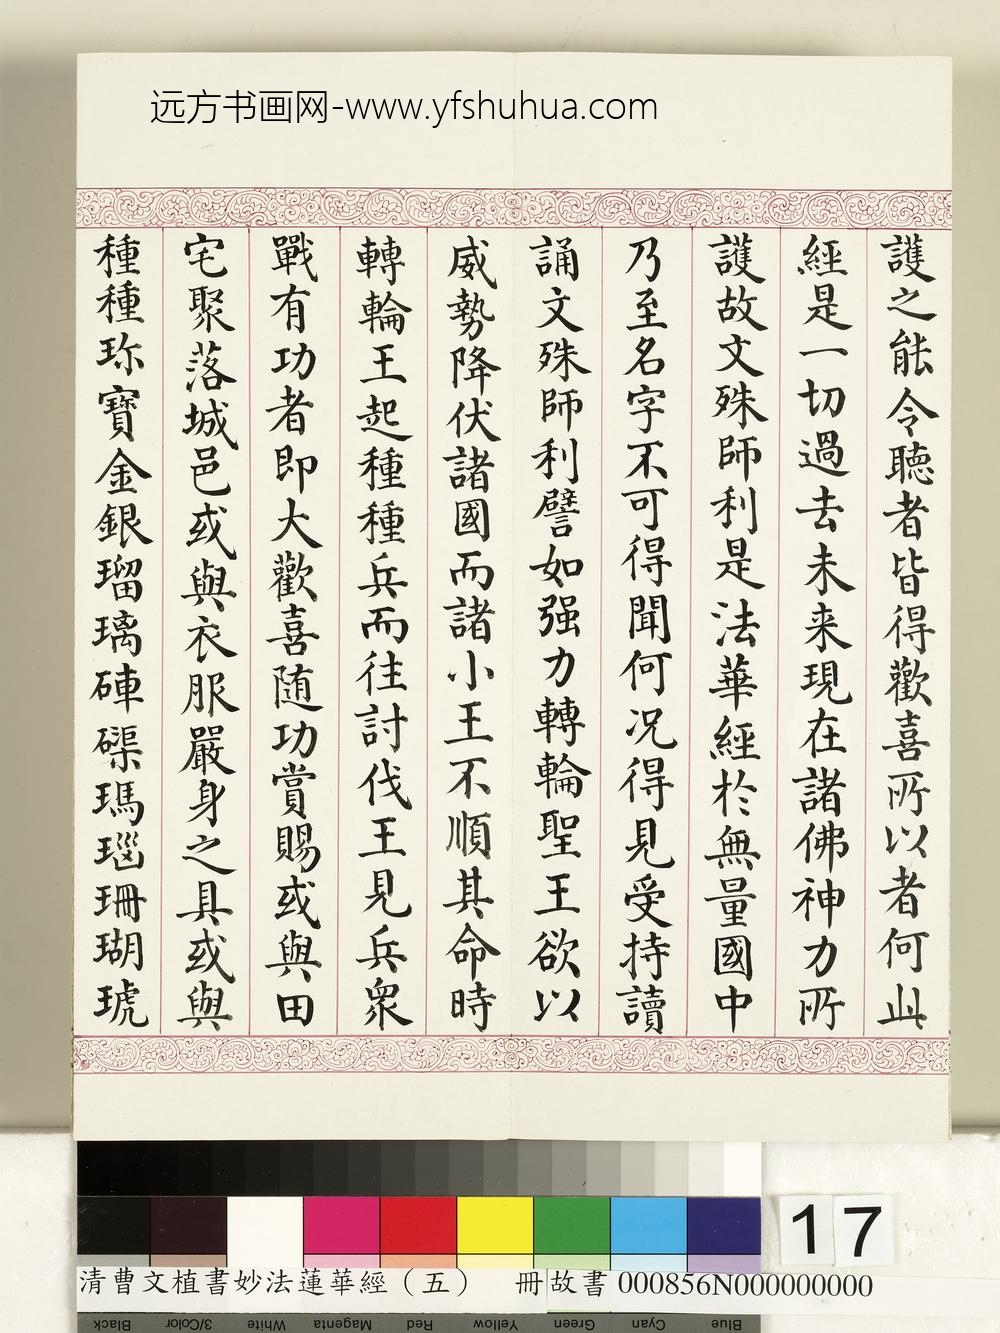 远方书画网-www.yfshuhua.com
護之能令聽者皆得歡喜所以者何此
經是一切過去未来現在諸佛神力所
護故文殊師利是法華經於無量國中
乃至名字不可得聞何况得見受持讀
誦文殊師利譬如强力轉輪聖王欲以
威勢降伏諸國而諸小王不順其命時
轉輪王起種種兵而往討伐王見兵衆
戰有功者即大歡喜随功賞賜或與田
宅聚落城邑或與衣服嚴身之具或與
種種珎寶金銀瑠璃硨磲瑪瑙珊瑚琥
17
清曹文植書妙法蓮華經（五） 冊 故書000856N000000000
Black 3/Color White Magenta Red Yellow Green Cyan Blue